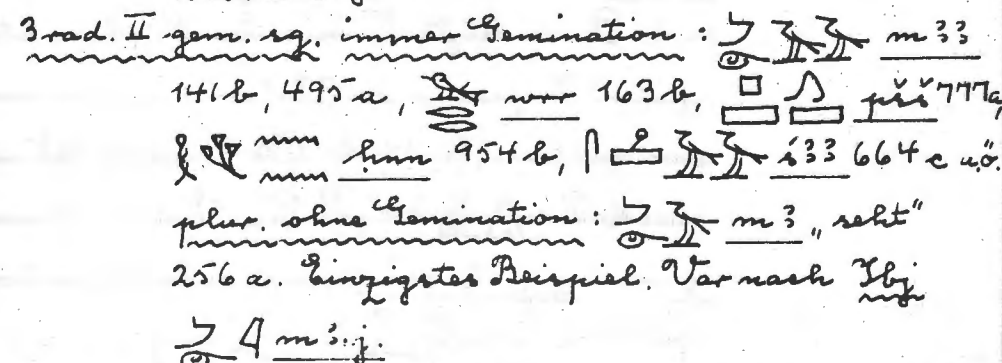 3rad. II gem. sg. immer Gemination: 𓌳𓁹𓄿𓄿 mꜣꜣ
141b, 495a, 𓅨𓂋𓂋 wrr 163b, 𓊪𓈙𓏎𓈙 pšš 777a,
𓎛𓇓𓈖𓈖 ḥnn 954b, 𓋴𓄿𓄿 śꜣꜣ 664c u.ö.
plur. ohne Gemination: 𓌳𓁹𓄿 mꜣ „seht“
256a. Einzigstes Beispiel. Var nach Ibj
𓌳𓁹𓇋 mꜣ:j.